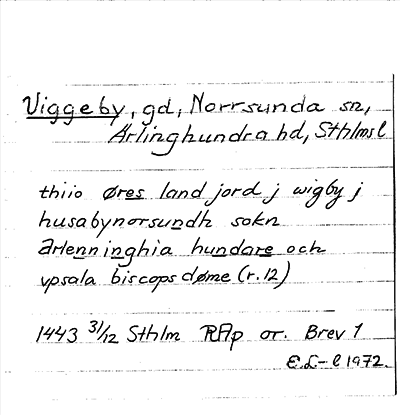 Viggeby, gd, Norrsunda sn,
Ärlinghundra hd, Sthlms l
thiio øres land jord j wigby j
husabynorsundh sokn
ærlenninghia hundare och
vpsala biscopsdøme (r. 12)
1443 31/12 Sthlm RAp or. Brev 1
E.L-l 1972.